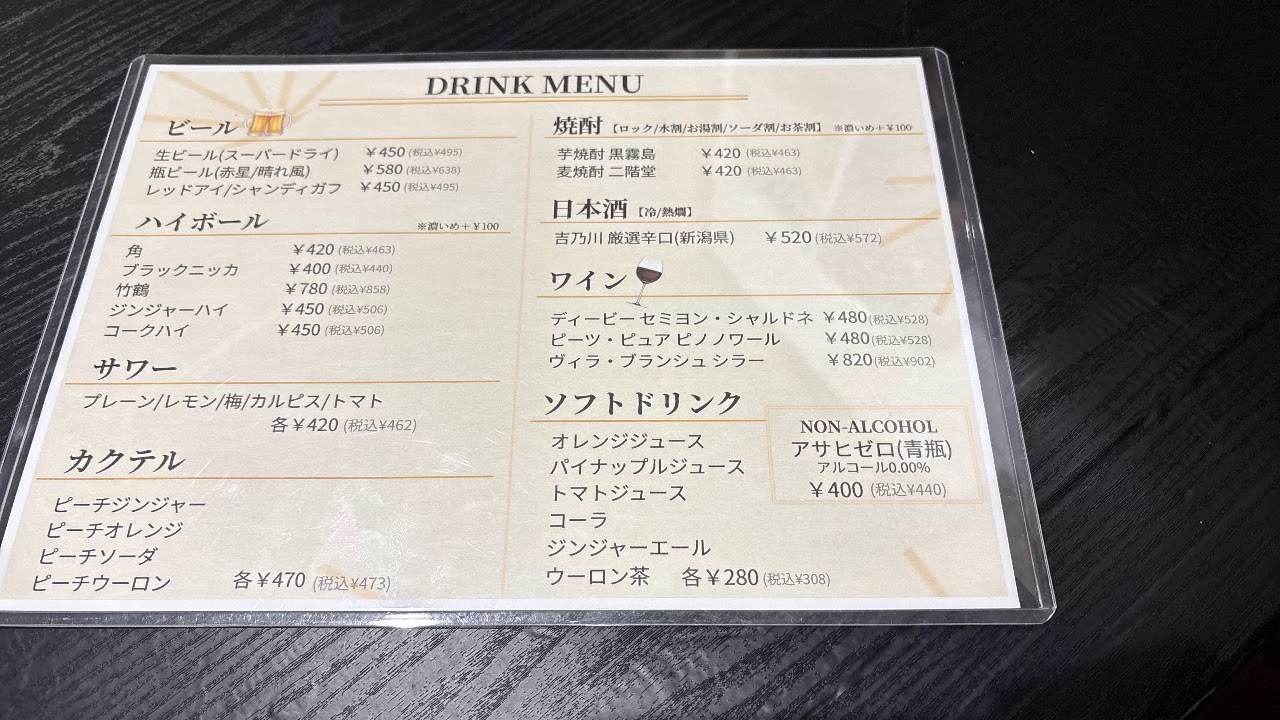 DRINK MENU
ビール
生ビール(スーパードライ) ￥450 (税込¥495)
瓶ビール(赤星/晴れ風) ￥580 (税込¥638)
レッドアイ/シャンディガフ ￥450 (税込¥495)
ハイボール ※濃いめ＋￥100
角 ￥420 (税込¥463)
ブラックニッカ ￥400 (税込¥440)
竹鶴 ￥780 (税込¥858)
ジンジャーハイ ￥450 (税込¥506)
コークハイ ￥450 (税込¥506)
サワー
プレーン/レモン/梅/カルピス/トマト
各￥420 (税込¥462)
カクテル
ピーチジンジャー
ピーチオレンジ
ピーチソーダ
ピーチウーロン 各￥470 (税込¥473)
焼酎【ロック/水割/お湯割/ソーダ割/お茶割】 ※濃いめ＋￥100
芋焼酎 黒霧島 ￥420 (税込¥463)
麦焼酎 二階堂 ￥420 (税込¥463)
日本酒【冷/熱燗】
吉乃川 厳選辛口(新潟県) ￥520 (税込¥572)
ワイン
ディービー セミヨン・シャルドネ ￥480(税込¥528)
ピーツ・ピュア ピノ ノワール ￥480(税込¥528)
ヴィラ・ブランシュ シラー ￥820(税込¥902)
ソフトドリンク
オレンジジュース
パイナップルジュース
トマトジュース
コーラ
ジンジャーエール
ウーロン茶 各￥280 (税込¥308)
NON-ALCOHOL
アサヒゼロ(青瓶)
アルコール0.00%
￥400 (税込¥440)